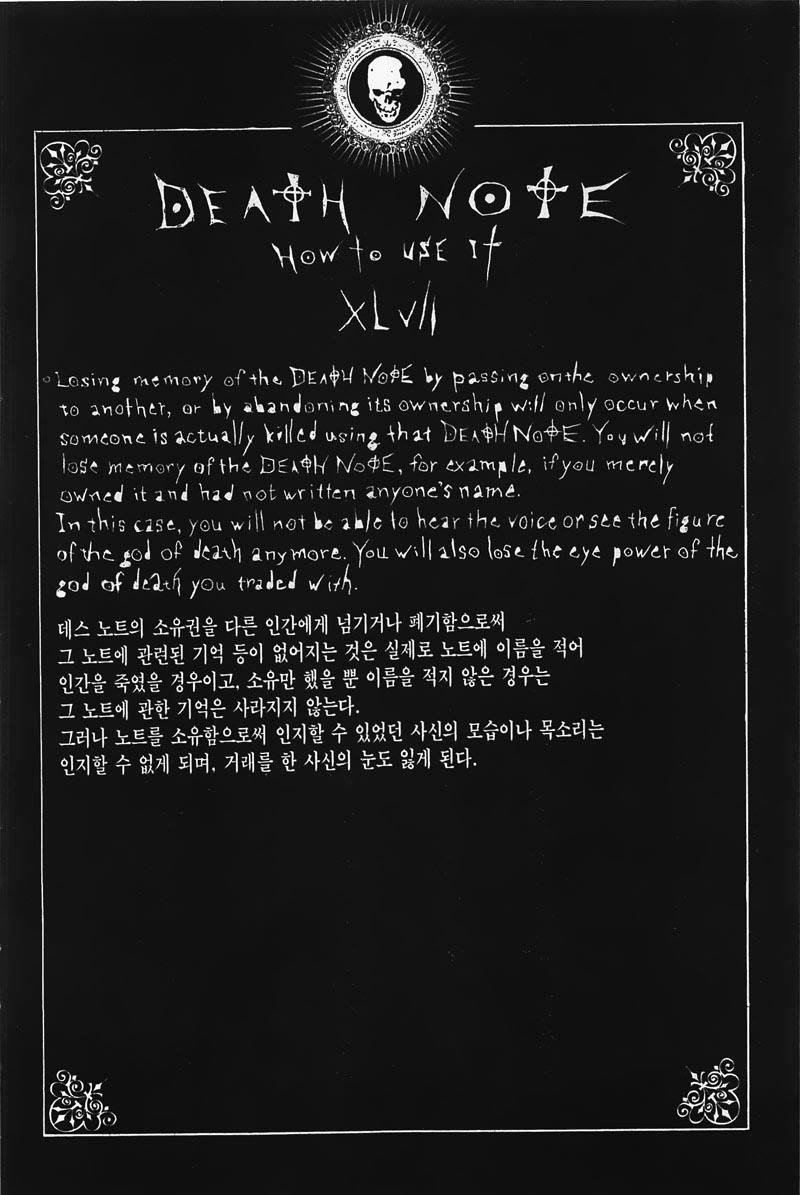 DEATH NOTE
HOW TO USE IT
XLVII
Losing memory of the DEATH NOTE by passing on the ownership
to another, or by abandoning its ownership will only occur when
someone is actually killed using that DEATH NOTE. You will not
lose memory of the DEATH NOTE, for example, if you merely
owned it and had not written anyone's name.
In this case, you will not be able to hear the voice or see the figure
of the god of death anymore. You will also lose the eye power of the
god of death you traded with.
데스 노트의 소유권을 다른 인간에게 넘기거나 폐기함으로써
그 노트에 관련된 기억 등이 없어지는 것은 실제로 노트에 이름을 적어
인간을 죽였을 경우이고, 소유만 했을 뿐 이름을 적지 않은 경우는
그 노트에 관한 기억은 사라지지 않는다.
그러나 노트를 소유함으로써 인지할 수 있었던 사신의 모습이나 목소리는
인지할 수 없게 되며, 거래를 한 사신의 눈도 잃게 된다.